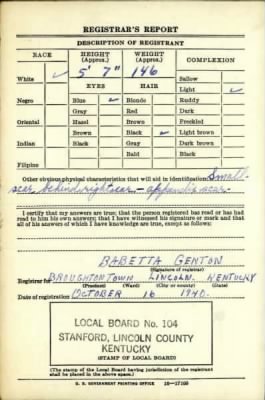 REGISTRAR'S REPORT
DESCRIPTION OF REGISTRANT
RACE HEIGHT (Approx.) WEIGHT (Approx.) COMPLEXION
5' 7" 146
White ✓ Sallow
EYES HAIR Light ✓
Negro Blue ✓ Blonde Ruddy
Gray Red Dark
Oriental Hazel Brown Freckled
Brown Black ✓ Light brown
Indian Black Gray Dark brown
Bald Black
Filipino
Other obvious physical characteristics that will aid in identification Small
scar behind right ear - appendix scar-
I certify that my answers are true; that the person registered has read or has had
read to him his own answers; that I have witnessed his signature or mark and that
all of his answers of which I have knowledge are true, except as follows:
BABETTA GENTON
(Signature of registrar)
Registrar for BROUGHTONTOWN LINCOLN KENTUCKY
(Precinct) (Ward) (City or county) (State)
Date of registration OCTOBER 16 1940.
LOCAL BOARD No. 104
STANFORD, LINCOLN COUNTY
KENTUCKY
(STAMP OF LOCAL BOARD)
(The stamp of the Local Board having jurisdiction of the registrant
shall be placed in the above space.)
U. S. GOVERNMENT PRINTING OFFICE 16—17105